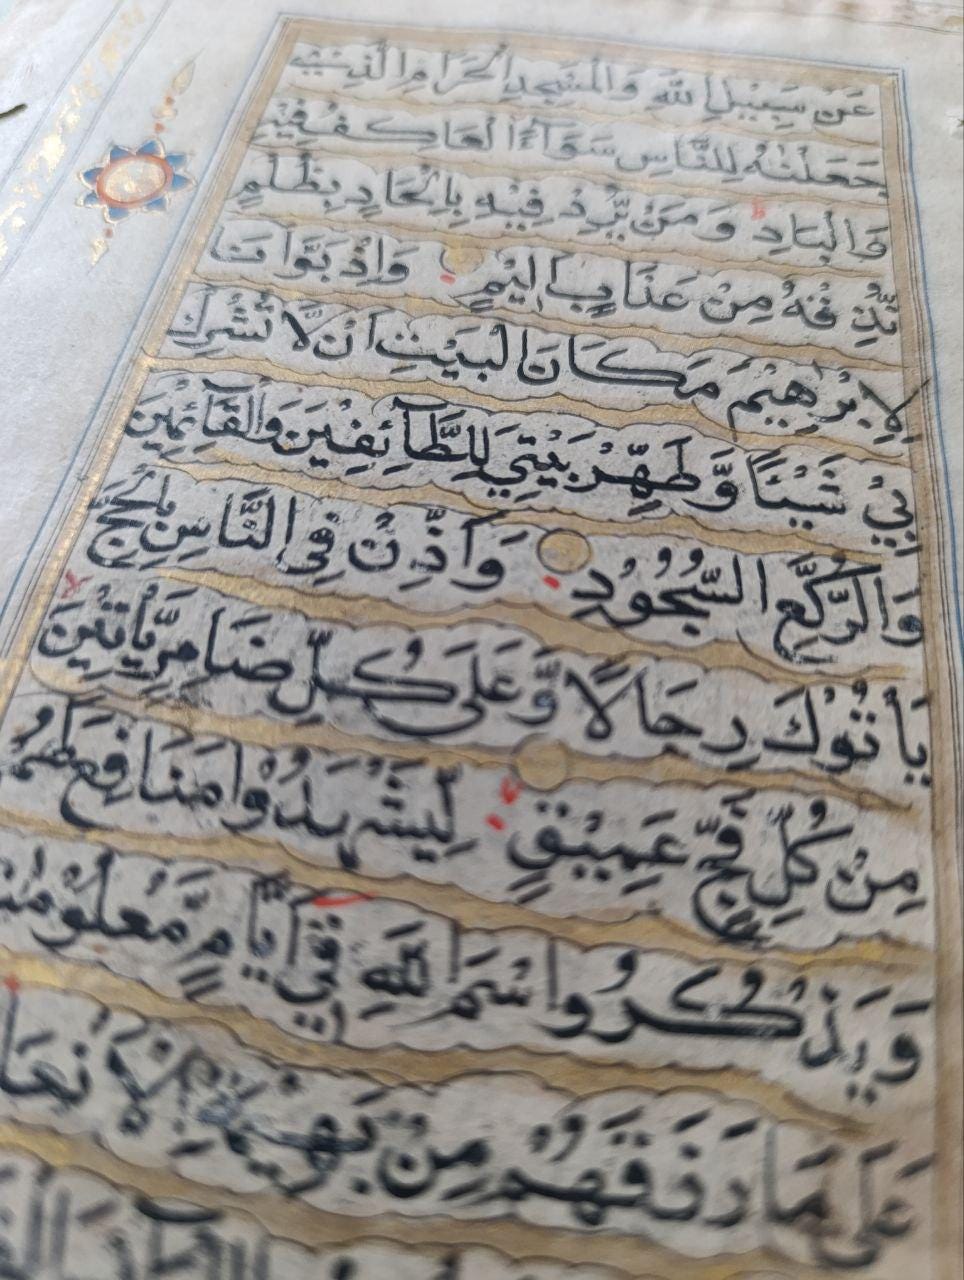 عَنْ سَبِيْلِ اللّٰهِ وَالْمَسْجِدِ الْحَرَامِ الَّذِيْ
جَعَلْنٰهُ لِلنَّاسِ سَوَآءً الْعَاكِفُ فِيْهِ
وَالْبَادِ وَمَنْ يُّرِدْ فِيْهِ بِاِلْحَادٍ بِظُلْمٍ
نُّذِقْهُ مِنْ عَذَابٍ اَلِيْمٍ وَاِذْ بَوَّاْنَا
لِاِبْرٰهِيْمَ مَكَانَ الْبَيْتِ اَنْ لَّا تُشْرِكْ
بِيْ شَيْئًا وَّطَهِّرْ بَيْتِيَ لِلطَّآئِفِيْنَ وَالْقَآئِمِيْنَ
وَالرُّكَّعِ السُّجُوْدِ وَاَذِّنْ فِي النَّاسِ بِالْحَجِّ
يَاْتُوْكَ رِجَالًا وَّعَلٰى كُلِّ ضَامِرٍ يَّاْتِيْنَ
مِنْ كُلِّ فَجٍّ عَمِيْقٍ لِيَشْهَدُوْا مَنَافِعَ لَهُمْ
وَيَذْكُرُوا اسْمَ اللّٰهِ فِيْٓ اَيَّامٍ مَّعْلُوْمٰتٍ
عَلٰى مَا رَزَقَهُمْ مِنْ بَهِيْمَةِ الْاَنْعَا